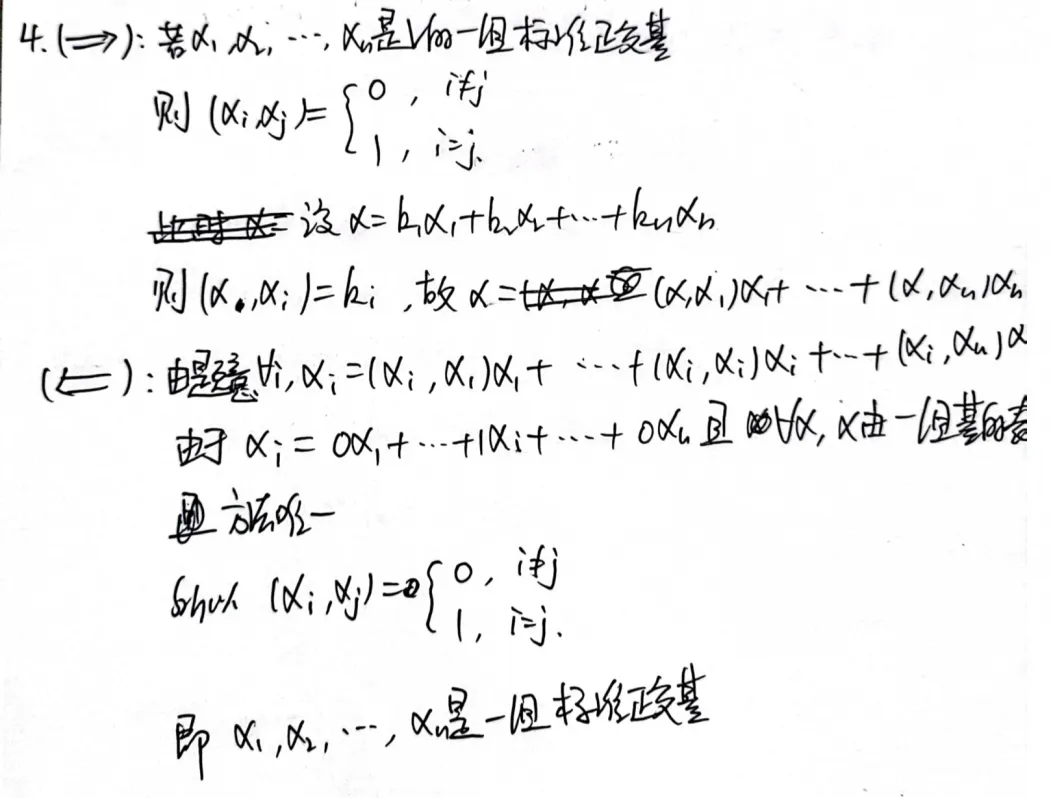 4. (⟹): 若α₁, α₂, ⋯, αₙ是V的一组标准正交基
则 (αᵢ,αⱼ)= { 0 , i≠j
1 , i=j.
设 α=k₁α₁+k₂α₂+⋯+kₙαₙ
则(α,αᵢ)=kᵢ ,故 α=(α,α₁)α₁+ ⋯+(α,αₙ)αₙ
(⟸): 由题意∀i, αᵢ=(αᵢ,α₁)α₁+ ⋯+(αᵢ,αᵢ)αᵢ+⋯+(αᵢ,αₙ)α
由于 αᵢ= 0α₁+⋯+1αᵢ+⋯+0αₙ 且 ∀α, α由一组基的表
方法唯一
所以 (αᵢ,αⱼ)= { 0 , i≠j
1 , i=j.
即 α₁,α₂,⋯, αₙ是一组标准正交基